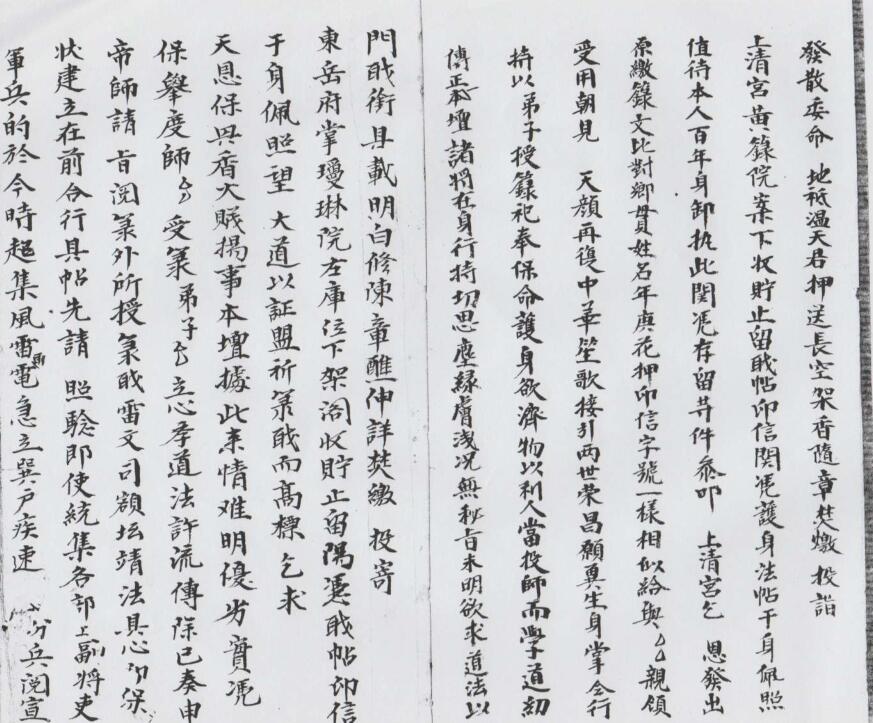 發散委命　地祇溫天君押送長空架香隨章焚燉投詣
上清宮黃籙院案下收貯止留戝帖印信関憑護身法帖于身佩照
值待本人百年身卸执此関憑存留苻件叅叩　上清宮乞　恩發出
原繳籙文比對鄉貫姓名年庚花押印信字號一樣相似給與厶厶親領
受用朝見　天顔再復中華笙歌接引两世荣昌願真生身掌令行
持以弟子授籙祀奉保命護身欲濟物以利人當投師而學道幼
傳正本壇諸將在身行持切思塵緣膚淺况無秘旨未明欲求道法以
門戝銜具載明白修陳章醮伸詳焚繳　投寄
東岳府掌瓊琳院左庫位下架阁收貯止留陽憑戝帖印信
于身佩照望　大道以証盟祈箓戝而高標　乞求
天恩保舉香火賤揚事本壇據此来情难明優劣實憑
保舉度師厶厶受箓弟子厶立心奉道法許流傳除已奏申
帝師請旨阅箓外所授箓戝雷文司額坛靖法具心印保
状建立在前合行具帖先請　照騐即使統集各部正副將吏
軍兵的於今時起集風雷電雨急立巽户疾速　分兵阅宣